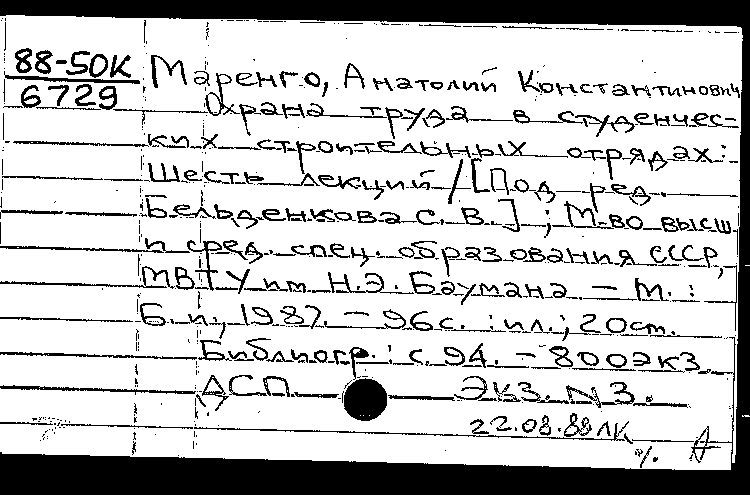 88-50К
6729
Маренго, Анатолий Константинович
Охрана труда в студенчес-
ких строительных отрядах:
Шесть лекций / [Под ред.
Бельденкова С. В.] ; М-во высш
и сред. спец. образования СССР,
МВТУ им. Н.Э. Баумана. – М. :
Б.и., 1987. – 96с. : ил.; 20см.
Библиогр.: с. 94. – 800экз
ДСП. Экз. N 3.
22.08.88 ЛК